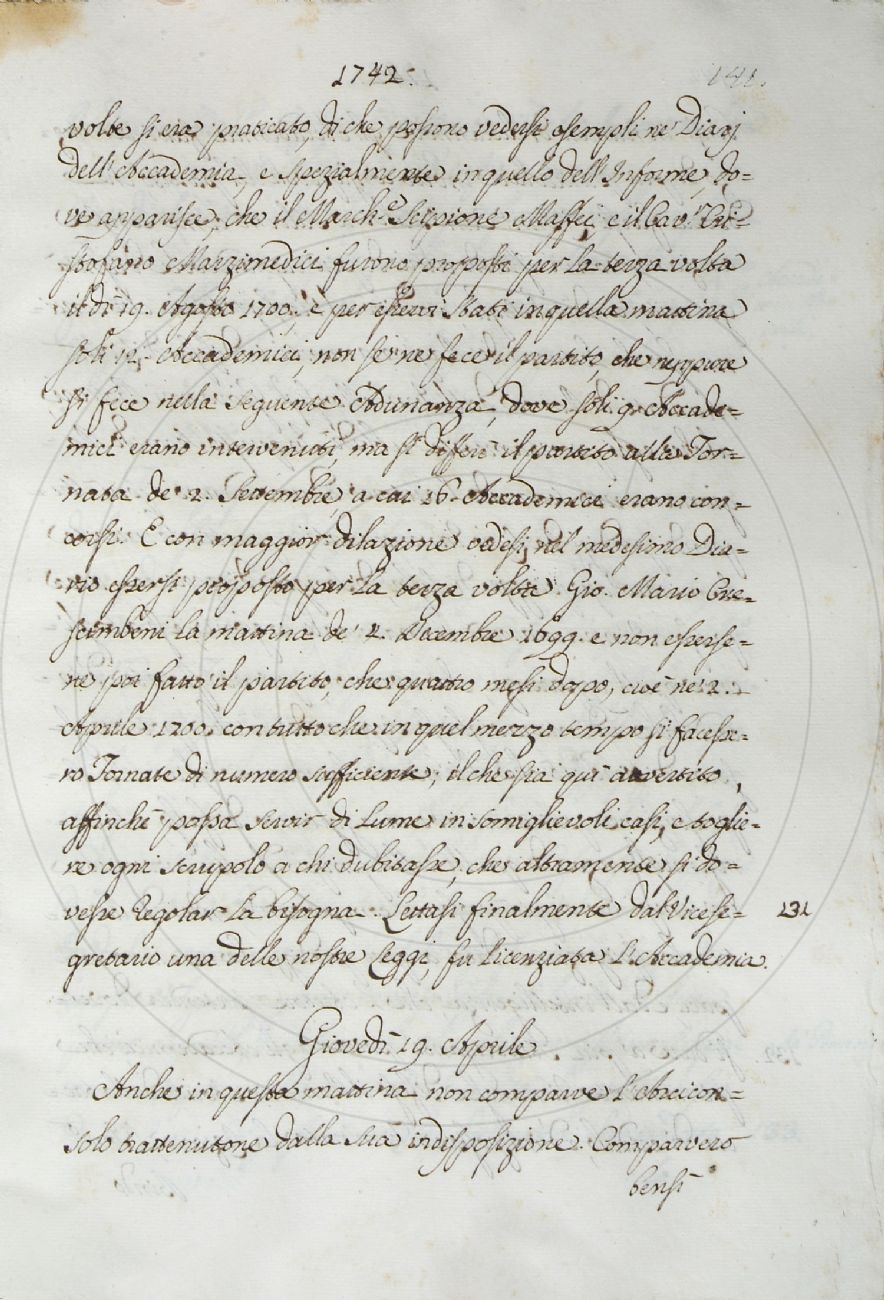 1742.
141.
volte si era praticato, di che possono vedersi esempli ne' Diarj
dell'Accademia, e spezialmente in quello dell'Informe, do=
ve apparisce, che il March.e Scipione Maffei, e il Cav.r Cri=
stofano Marzimedici furono proposti per la terza volta
il dì 19. Agosto 1700. e per esservi stati in quella mattina
soli 12. Accademici, non se ne fece il partito, che neppure
si fece nella seguente Adunanza, dove soli 9. Accade=
mici erano intervenuti, ma si differì il partito alla Tor=
nata de' 2. Settembre a cui 16. Accademici erano con=
corsi. E con maggior dilazione vedesi nel medesimo Dia=
rio essersi proposto per la terza volta Gio. Mario Cre=
scimbeni la mattina de' 4. Decembre 1699. e non esserse=
ne poi fatto il partito, che quattro mesi dopo, cioè ne' 2.
Aprile 1700. con tutto che in quel mezzo tempo si facesse=
ro Tornate di numero sufficiente; il che sia quì avvertito,
affinchè possa servir di lume in somiglievoli casi, e toglie=
re ogni scrupolo a chi dubitasse, che altramente si do=
vesse regolar la bisogna. Lettasi finalmente dal Vicese=
131
gretario una delle nostre Leggi, fu licenziata l'Accademia.
Giovedì 19. Aprile
Anche in questa mattina non comparve l'Arcicon=
solo trattenutone dalla sua indisposizione. Comparvero
bensì